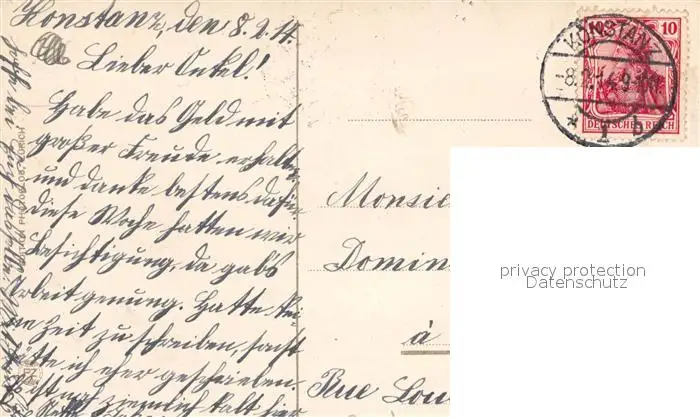 Konstanz, den 8.2.14.
Lieber Onkel!
Habe das Geld mit
großer Freude erhalten
und danke bestens dafür
diese Woche hatten wir
Besichtigung, da gabs
Arbeit genung. Hatte kei-
ne Zeit zu schreiben, sonst
hätte ich eher geschrieben.
ziemlich kalt hier
KONSTANZ
-8.2.14.9-10V
* 1 b
10
DEUTSCHES REICH
Monsie
Domin
à
Rue Lou
privacy protection
Datenschutz